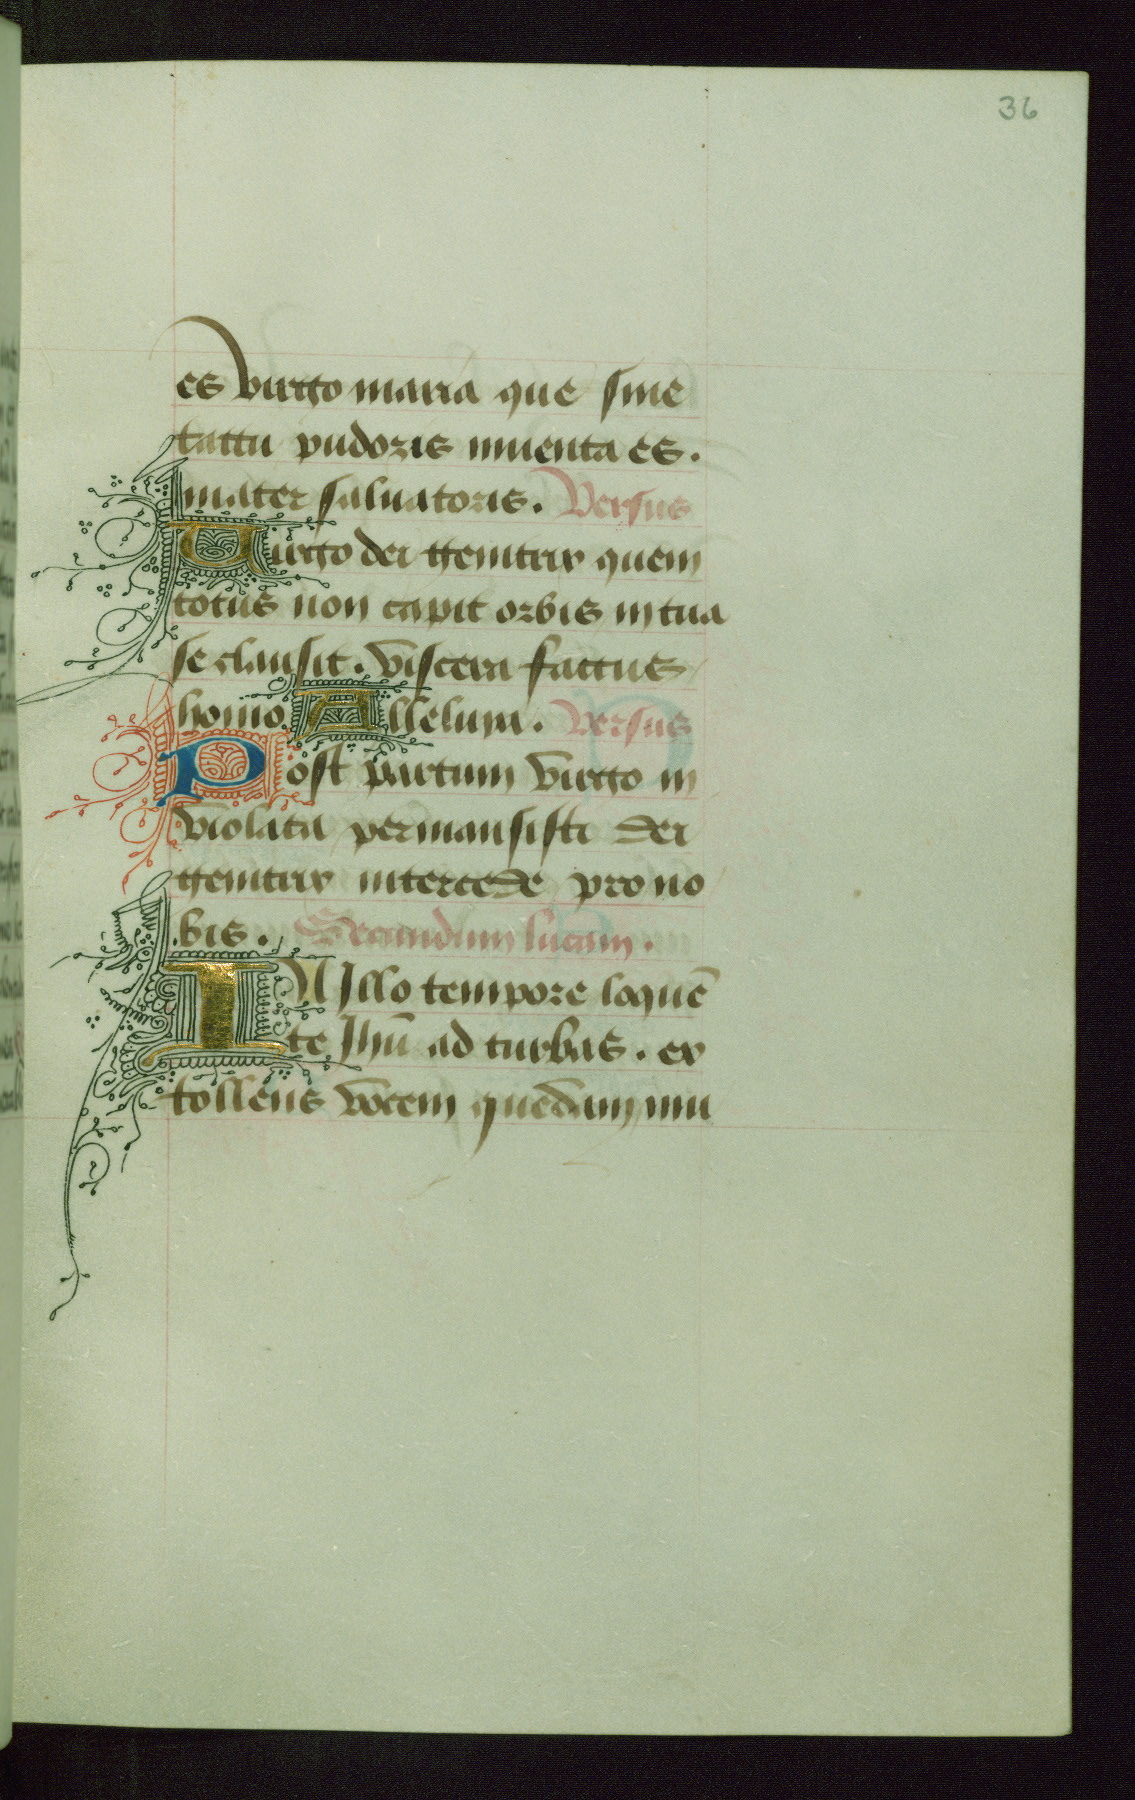 36
es virgo maria que sine
tactu pudoris inuenta es.
mater saluatoris. Versus
Uirgo dei genitrix quem
totus non capit orbis in tua
se clausit. viscera factus
homo Alleluya. Versus
Post partum virgo in
violata permansisti dei
genitrix intercede pro no
bis. Secundum lucam.
IN Illo tempore loquē
te Jhū ad turbas. ex
tollens vocem quedam mu